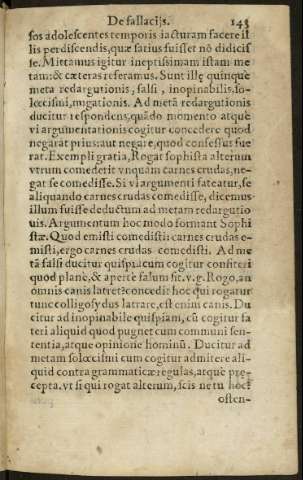 De fallacijs. 143
sos adolescentes temporis iacturam facere il
lis perdiscendis, quæ satius fuisset nõ didicis
se. Mittamus igitur ineptissimam istam me
tam: & cæteras referamus. Sunt illę quinquè
meta redargutionis, falsi, inopinabilis, so-
lœcismi, nugationis. Ad metã redargutionis
ducitur respondens, quãdo momento atquè
vi argumentationis cogitur concedere quod
negarat prius: aut negare, quod confessus fue
rat. Exempli gratia, Rogat sophista alterum
vtrum comederit vnquam carnes crudas, ne-
gat se comedisse. Si vi argumenti fateatur, se
aliquando carnes crudas comedisse, dicemus
illum fuisse deductum ad metam redargutio
nis. Argumentum hoc modo formant Sophi
stæ. Quod emisti comedisti: carnes crudas e-
misti, ergo carnes crudas comedisti. Ad me
tã falsi ducitur quispiã cum cogitur confiteri
quod planè, & apertè falsum sit. v. g. Rogo, an
omnis canis latret? concedit hoc qui rogatur
tunc colligo sydus latrare, est enim canis. Du
citur ad inopinabile quispiam, cũ cogitur fa
teri aliquid quod pugnet cum communi sen-
tentia, atque opinione hominũ. Ducitur ad
metam solœcismi cum cogitur admitere ali-
quid contra grammaticæ regulas, atquè pręe
cepta. vt si qui rogat alterum, scis ne tu hoc?
osten-